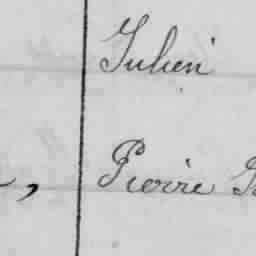 Julien
, Pierre